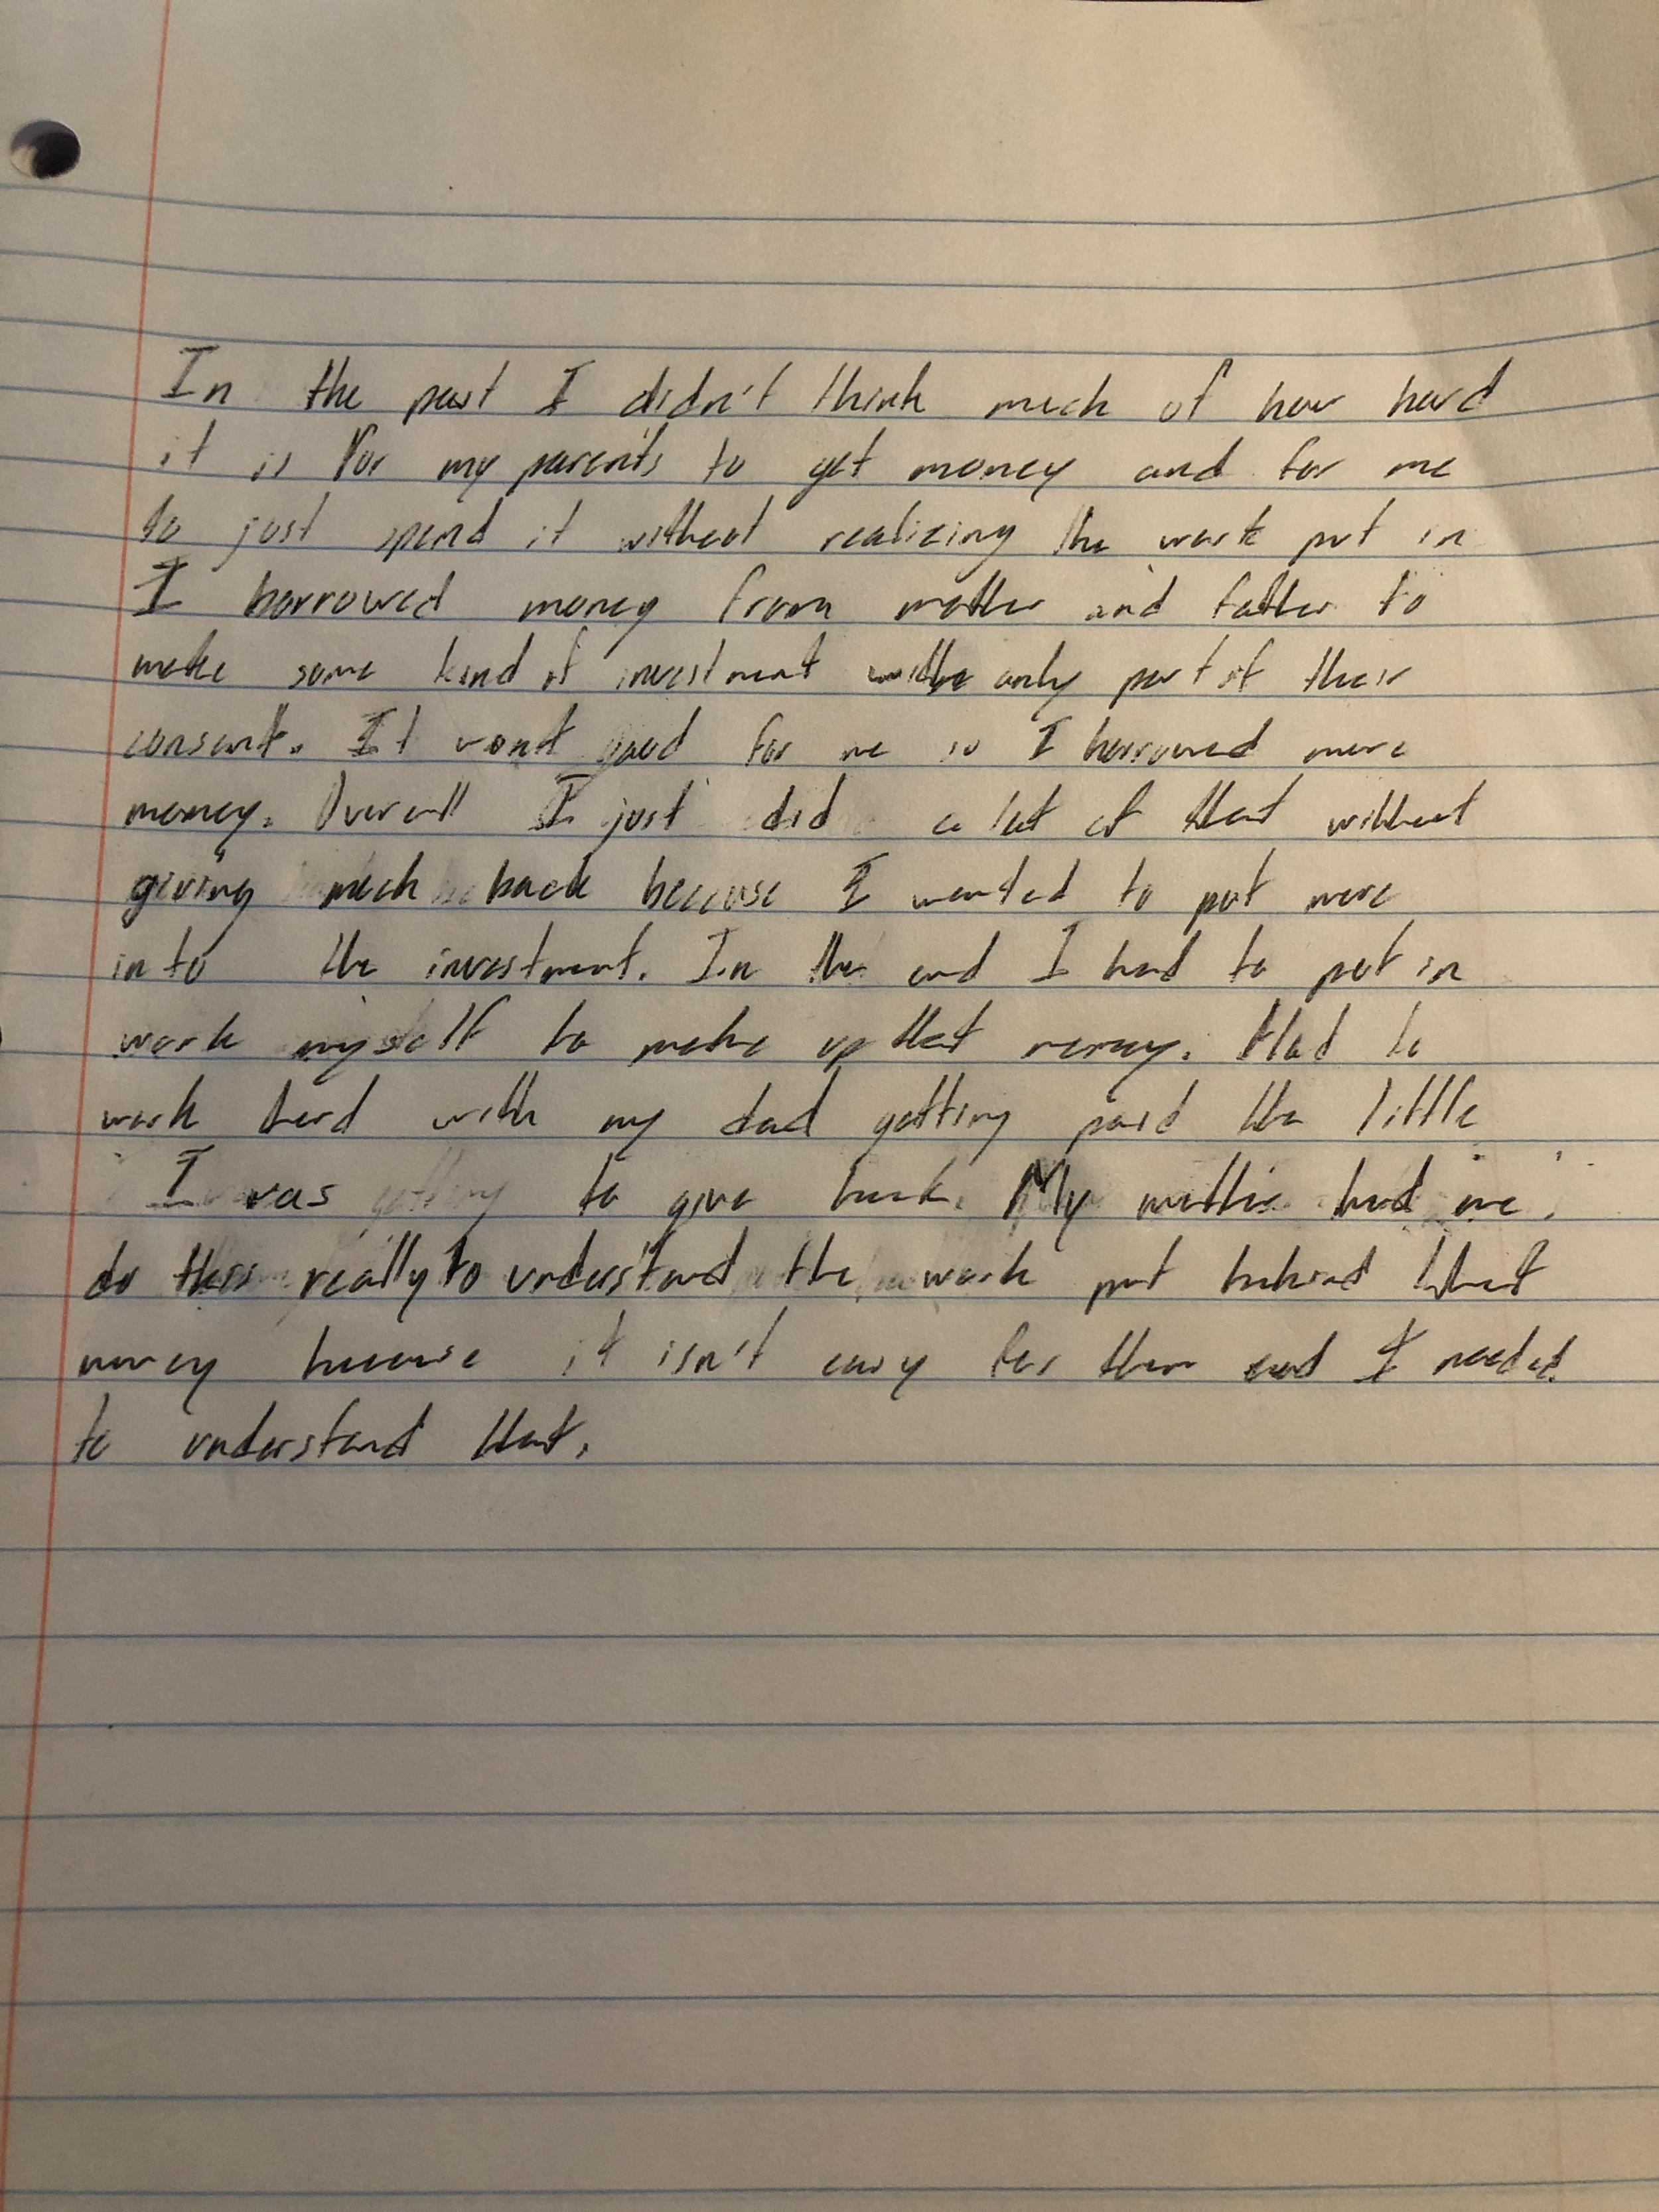 In the past I didn't think much of how hard
it is for my parents to get money and for me
to just spend it without realizing the work put in
I borrowed money from mother and father to
make some kind of investment with only part of their
consent. It went good for me so I borrowed more
money. Overall I just did a lot of that without
giving much back because I wanted to put more
into the investment. In the end I had to put in
work myself to make up that money. Had to
work hard with my dad getting paid the little
I was to give back. My mother had me
do this really to understand the work put behind that
money because it isn't easy for them and I needed
to understand that.